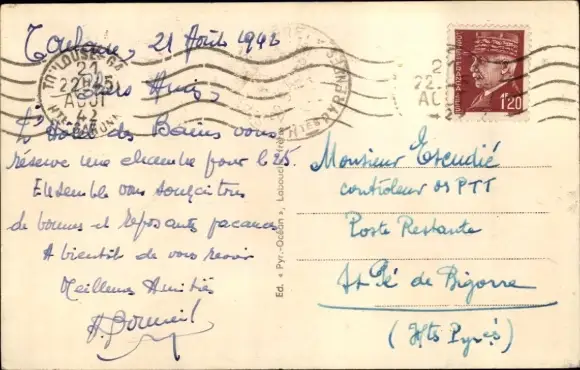 Toulouse, 21 Août 1942
Chers Amis,
L'Hotel des Bains vous
réserve une chambre pour le 25.
Ensemble vous souhaitons
de bonnes et reposantes vacances
A bientôt de vous revoir
Meilleures Amitiés
TOULOUSE-G.
22
AOUT
42
Hte GARONNE
Htes PYRENEES
1F20
Ed. « Pyr.-Océan », Labouche Frères
Monsieur Escudié
contrôleur des PTT
Poste Restante
St Pé de Bigorre
(Hts Pyrés)